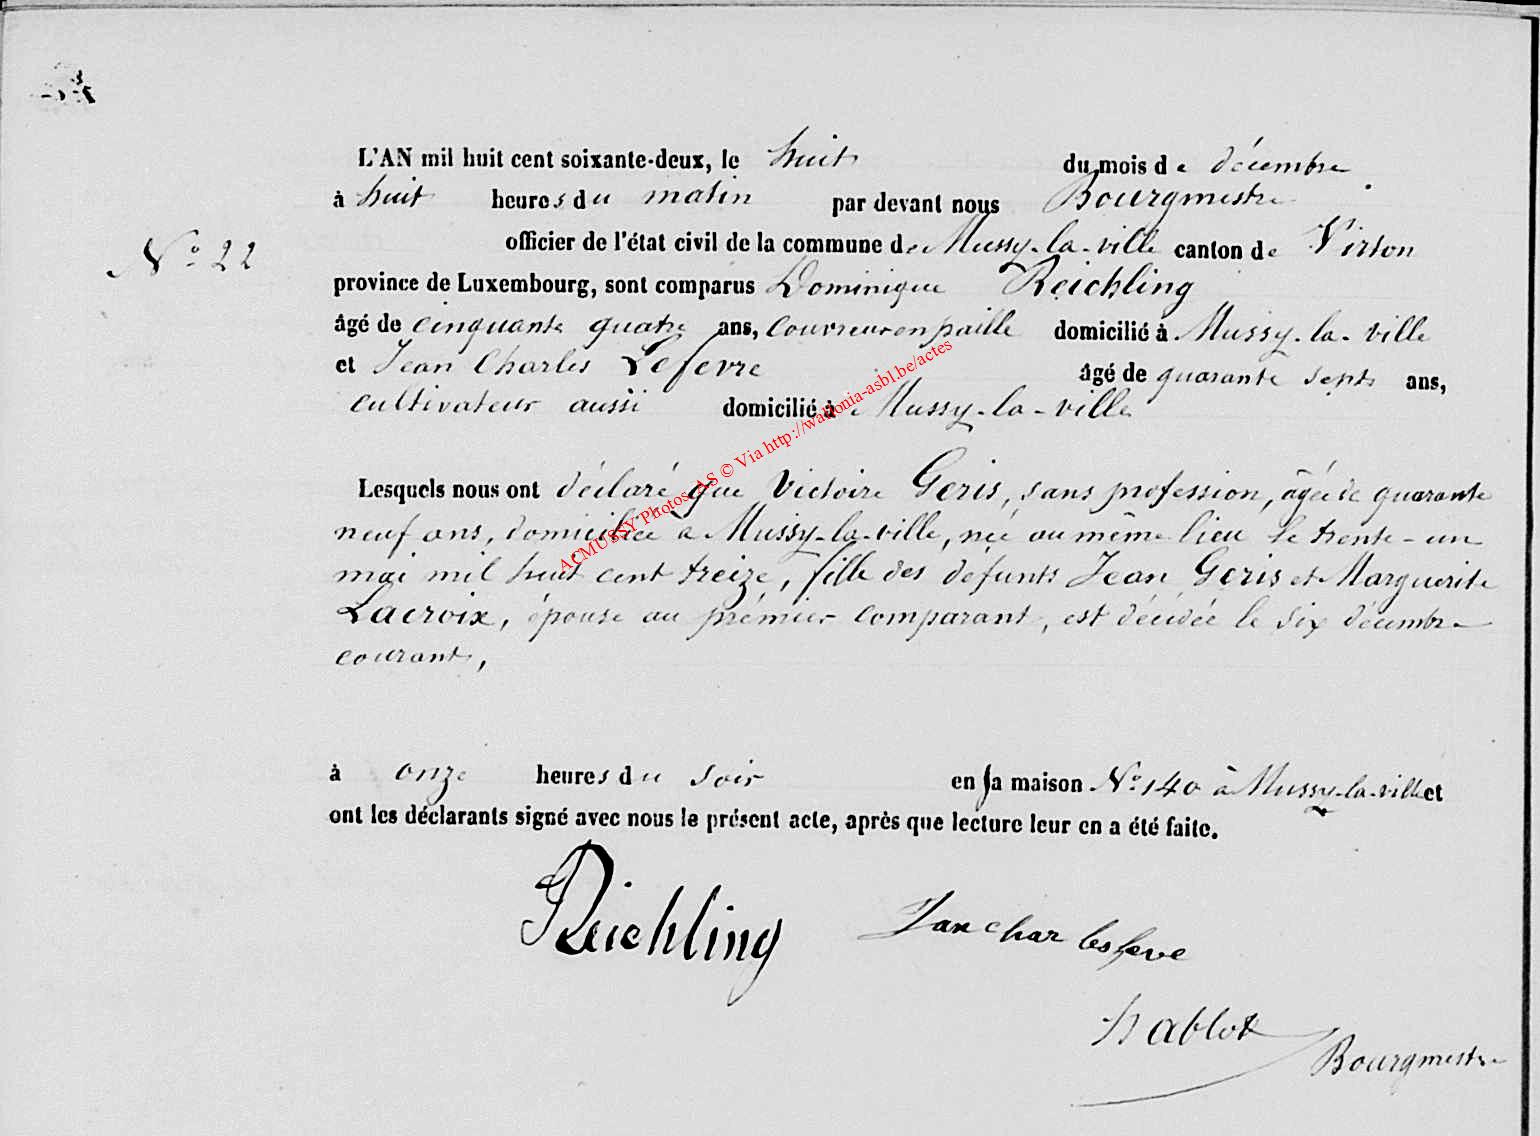 L'AN mil huit cent soixante-deux, le huit du mois de décembre
à huit heures du matin par devant nous Bourgmestre
officier de l'état civil de la commune de Mussy-la-ville canton de Virton
N° 22
province de Luxembourg, sont comparus Dominique Reichling
âgé de cinquante quatre ans, couvreur en paille domicilié à Mussy-la-ville
et Jean Charles Lefevre âgé de quarante sept ans,
cultivateur aussi domicilié à Mussy-la-ville
Lesquels nous ont déclaré que Victoire Geris, sans profession, âgée de quarante
neuf ans, domiciliée a Mussy-la-ville, née au même lieu le trente-un
mai mil huit cent treize, fille des défunts Jean Geris et Marguerite
Lacroix, épouse au prémier comparant, est décédée le six décembre
courant,
à onze heures du soir en sa maison N° 140 à Mussy-la-ville et
ont les déclarants signé avec nous le présent acte, après que lecture leur en a été faite.
Reichling Jan char lesfeve
hablot
Bourgmestre
ACMUSSY Photos AS © Via http://wallonia-asbl.be/actes